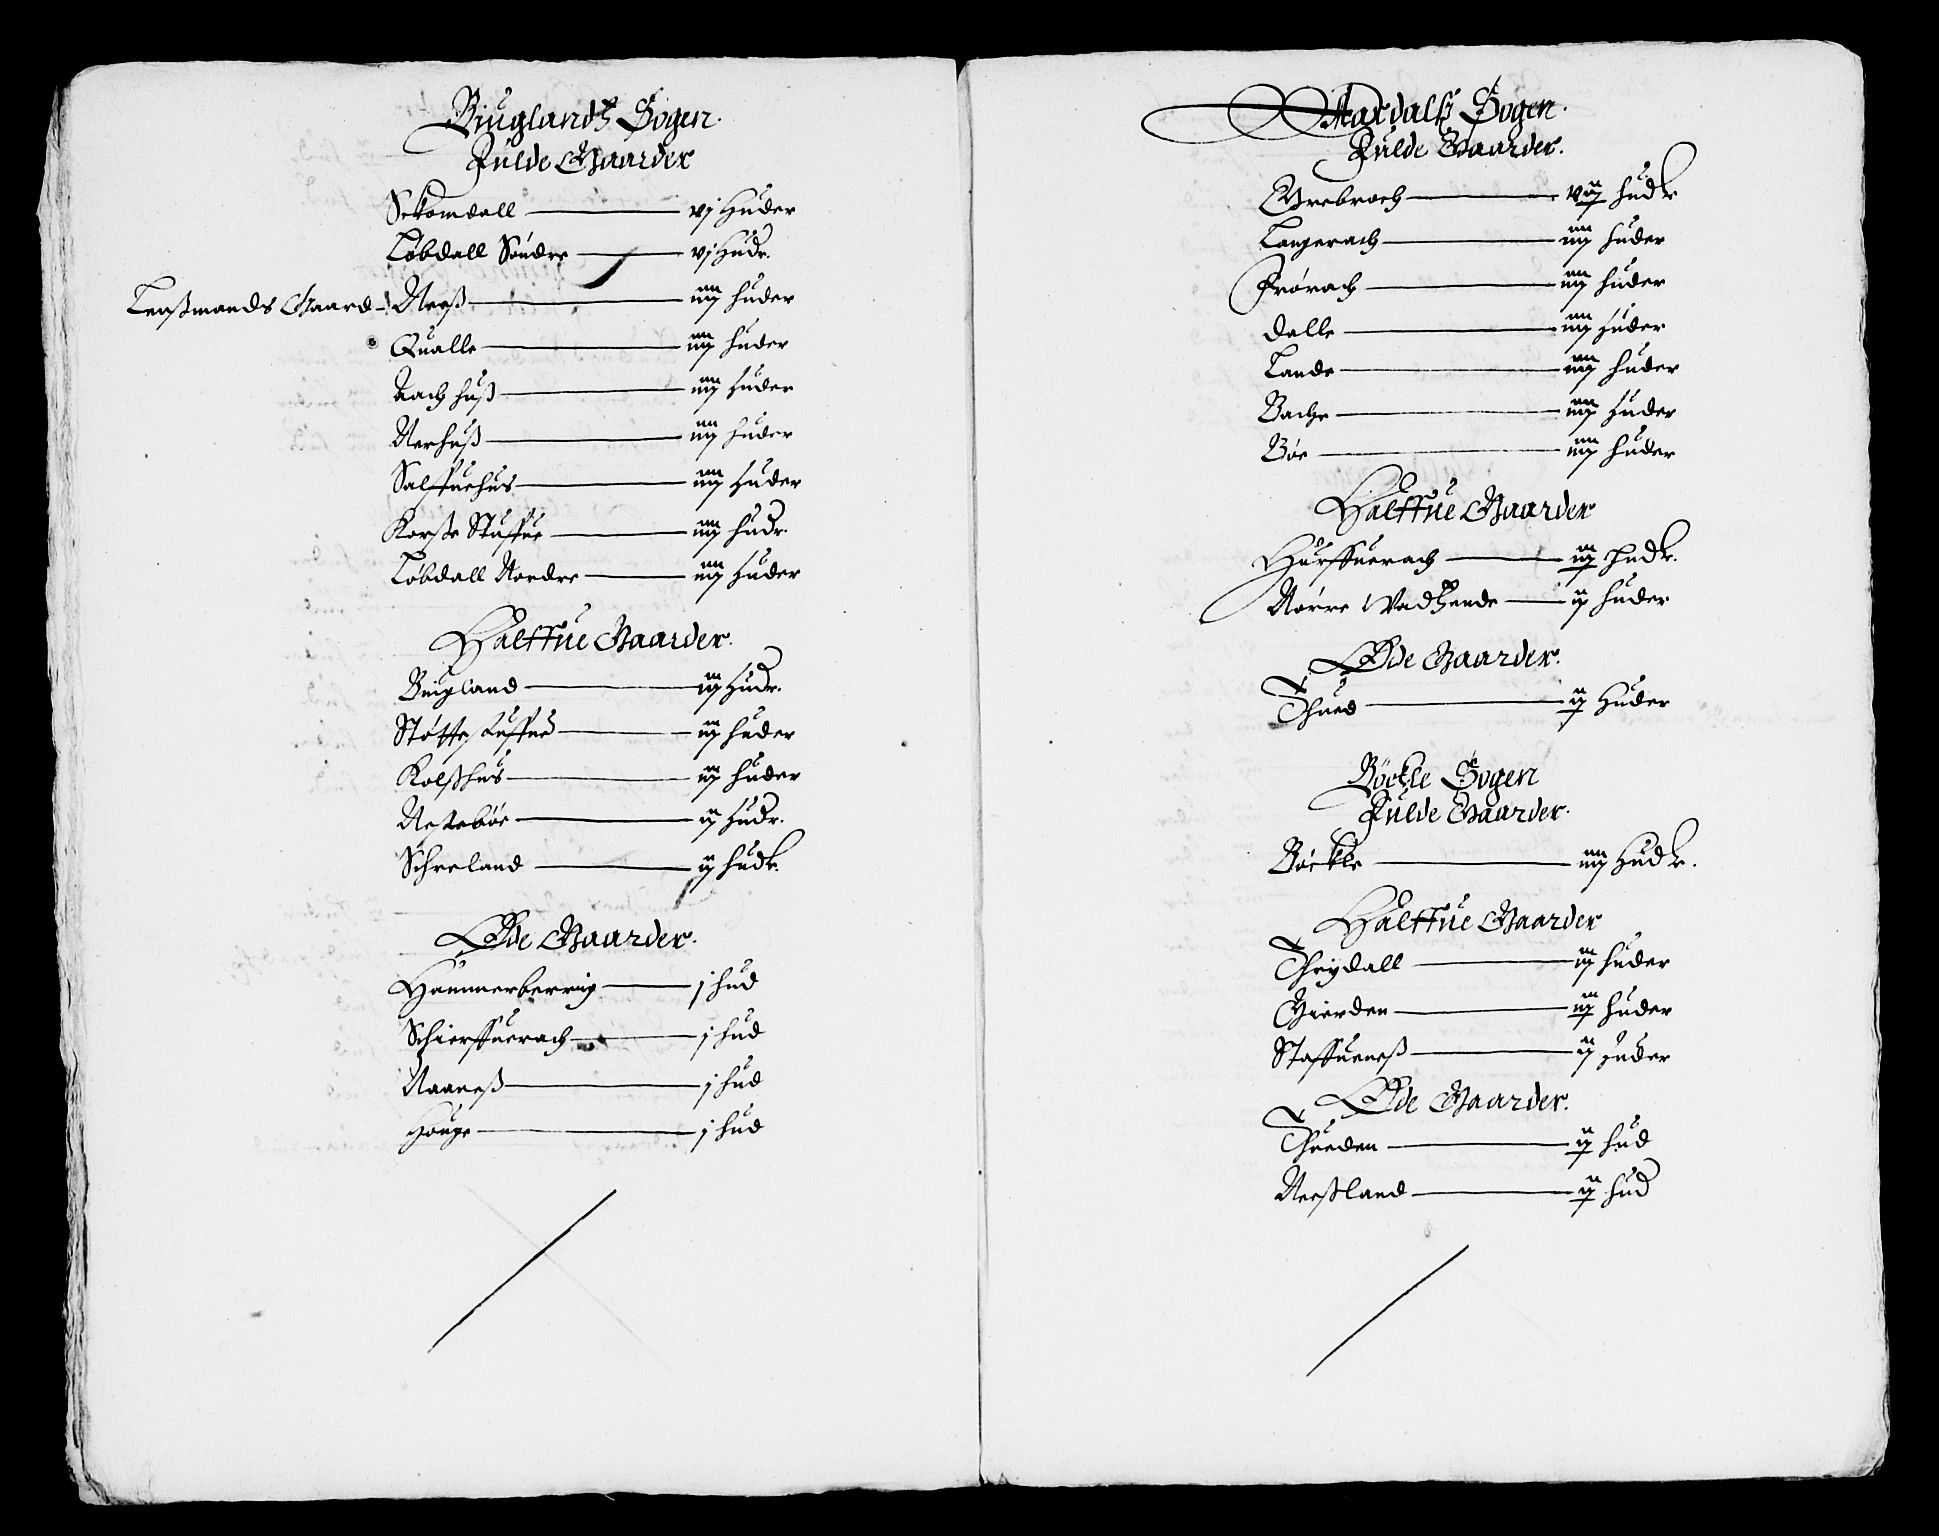 Biuglandtz Sogen.
Fulde Gaarder
Sckomdall — vj Huder
Løbdall Søndre — vj Hudr.
Lenßmands Gaard – Neeß — iiij huder
Qualle — iiij huder
Aachhuß — iiij Huder
Nerhuß — iiij huder
Salffuehus — iiij Huder
Korße Stuffue — iiij hudr.
Løbdall Nordre — iiij Huder
Halffue Gaarder.
Biugland — iij Hudr.
Støtte Luffue — iij huder
Kolßhus — iij huder
Nesebøe — ij Hudr.
Schreland — ij hudr.
Øde Gaarder.
Hammerberrig — j hud
Schierffuerach — j hud
Naaneß — j hud
Houge — j hud
Aardalß Sogen.
Fulde Gaarder.
Grebroch — viij hudr
Langerach — iiij huder
Frørach — iiij huder
Dalle — iiij Huder
Lande — iiij huder
Bache — iiij Huder
Bøe — iiij huder
Halffue Gaarder
Hurffuerach — iij hudr.
Nørre Wadtzende — ij huder
Øde Gaarder.
Thued — ij Huder
Böckle Sogen
Fulde Gaarder.
Böckle — iiij Hudr.
Halffue Gaarder
Thrydall — iij huder
Gierden — iij huder
Staffueneß — ij Huder
Øde Gaarder.
Thueden — ij hud
Neeßland — ij hud